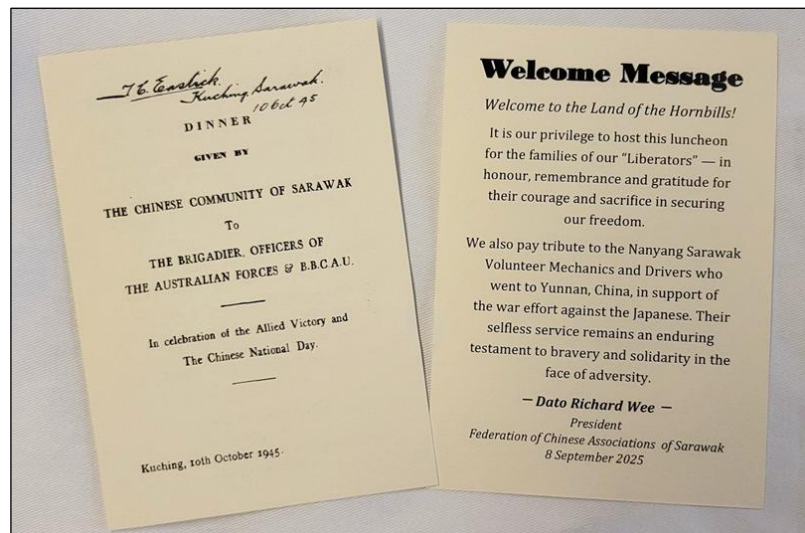 T. C. Eastick.
Kuching, Sarawak.
10 Oct 45
DINNER
GIVEN BY
THE CHINESE COMMUNITY OF SARAWAK
To
THE BRIGADIER, OFFICERS OF
THE AUSTRALIAN FORCES & B.B.C.A.U.
In celebration of the Allied Victory and
The Chinese National Day.
Kuching, 10th October 1945.
Welcome Message
Welcome to the Land of the Hornbills!
It is our privilege to host this luncheon
for the families of our “Liberators” — in
honour, remembrance and gratitude for
their courage and sacrifice in securing
our freedom.
We also pay tribute to the Nanyang Sarawak
Volunteer Mechanics and Drivers who
went to Yunnan, China, in support of
the war effort against the Japanese. Their
selfless service remains an enduring
testament to bravery and solidarity in the
face of adversity.
— Dato Richard Wee —
President
Federation of Chinese Associations of Sarawak
8 September 2025